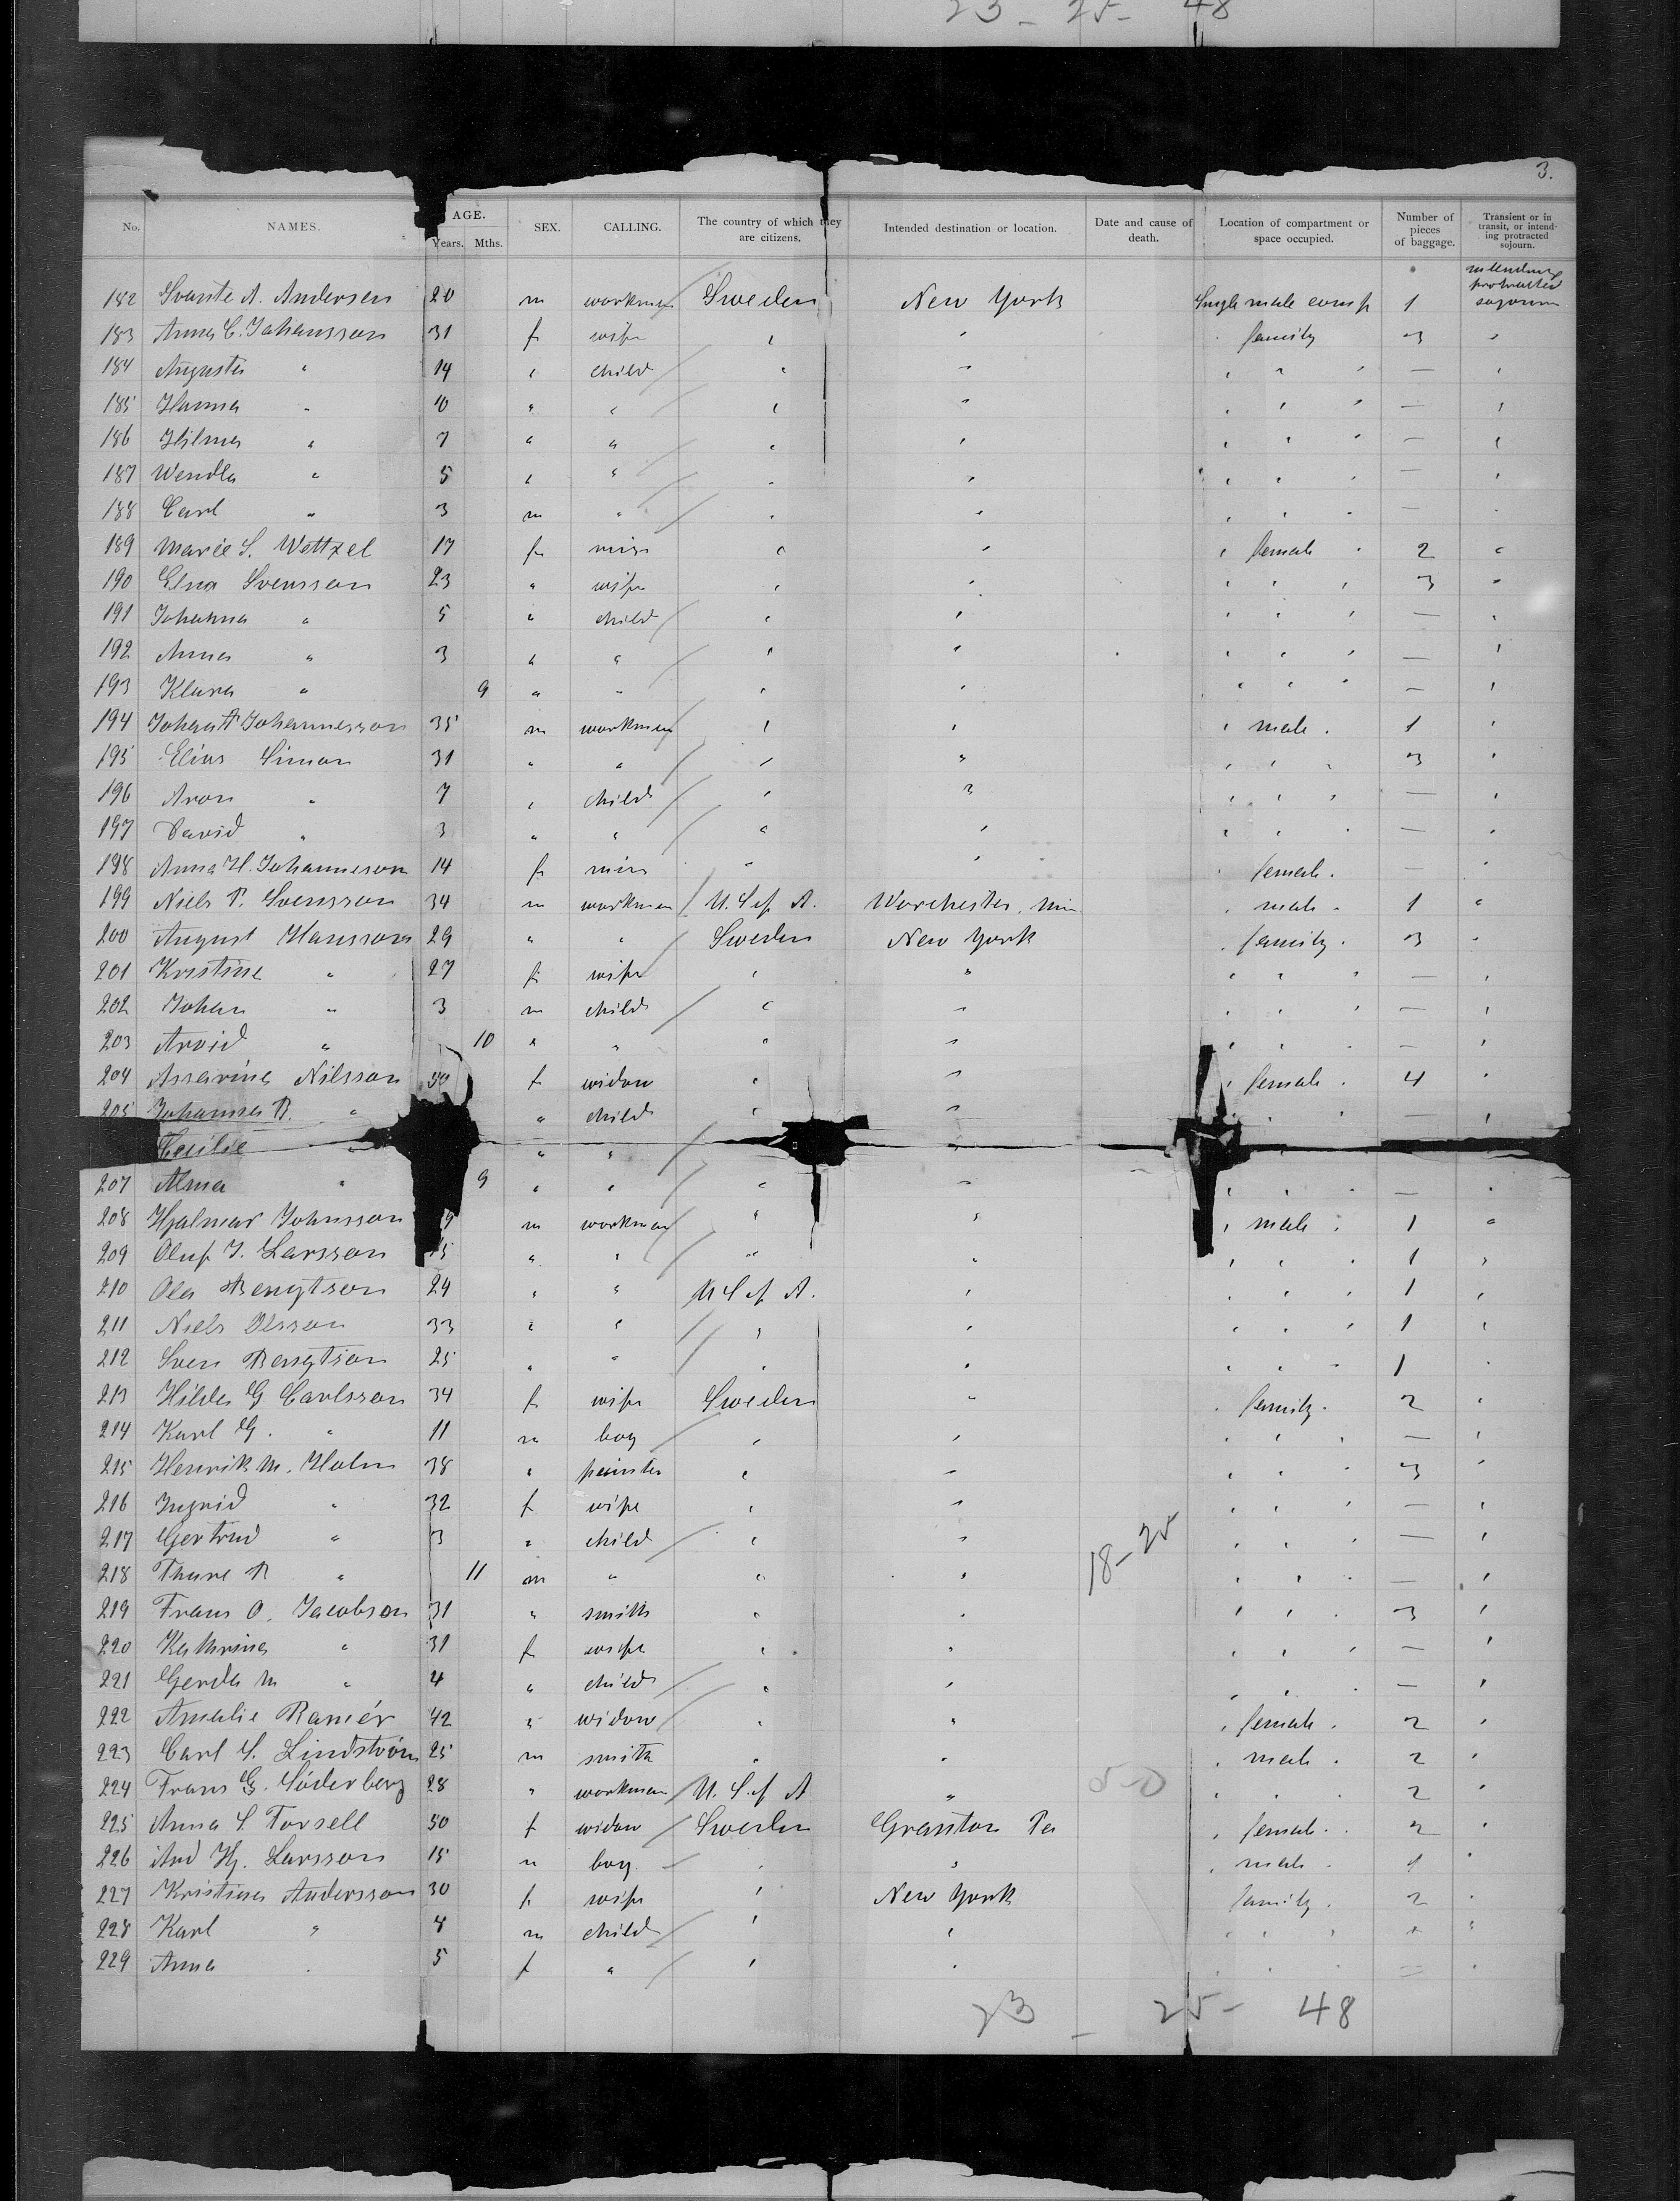 23 - 25 - 48
3.
No. NAMES. AGE. Years. Mths. SEX. CALLING. The country of which they are citizens. Intended destination or location. Date and cause of death. Location of compartment or space occupied. Number of pieces of baggage. Transient or in transit, or intending protracted sojourn.
182 Svante A. Andersen 20 m workman Sweden New York Single male comp 1 intending protracted sojourn
183 Anna C. Johansson 31 f wife " " family 3 "
184 Augusta " 14 " child " " " " " — "
185 Hanna " 10 " " " " " " " — "
186 Hilma " 7 " " " " " " " — "
187 Wendla " 5 " " " " " " " — "
188 Carl " 3 m " " " " " " — "
189 Marie S. Wettzel 17 f miss " " " female " 2 "
190 Elna Svensson 23 " wife " " " " " 3 "
191 Johanna " 5 " child " " " " " — "
192 Anna " 3 " " " " " " " — "
193 Klara " 9 " " " " " " " — "
194 Johan A Johannesson 35 m workman " " " male " 1 "
195 Elias Simon 31 " " " " " " " 3 "
196 Aron " 7 " child " " " " " — "
197 David " 3 " " " " " " " — "
198 Anna H. Johanneson 14 f miss " " " female " — "
199 Niels P. Svensson 34 m workman U. S of A. Worchester, Min " male " 1 "
200 August Hansson 29 " " Sweden New York " family " 3 "
201 Kristine " 27 f wife " " " " " — "
202 Johan " 3 m child " " " " " — "
203 Arvid " 10 " " " " " " " — "
204 Assarina Nilsson 30 f widow " " " female " 4 "
205 Johanna B. " " child " " " " — "
Cecilie " " " " "
207 Alma " 9 " " " " " " " — "
208 Hjalmar Johnsson 9 m workman " " " male " 1 "
209 Oluf J. Larsson 5 " " " " " " " 1 "
210 Ola Bengtson 24 " " U S of A. " " " " 1 "
211 Niels Olsson 33 " " " " " " " 1 "
212 Sven Bengtson 25 " " " " " " " 1 "
213 Hilda G Carlsson 34 f wife Sweden " " family " 2 "
214 Karl G. " 11 m boy " " " " " — "
215 Henrik M. Holm 38 " painter " " " " " 3 "
216 Ingrid " 32 f wife " " " " " — "
217 Gertrud " 3 " child " " " " " — "
18-25
218 Thure B " 11 m " " " " " " — "
219 Frans O. Jacobson 31 " smith " " " " " 3 "
220 Kathrina " 31 f wife " " " " " — "
221 Gerda M " 4 " child " " " " " — "
222 Amalie Ramér 42 " widow " " " female " 2 "
223 Carl S. Lindström 25 m smith " " " male " 2 "
224 Frans G. Söderberg 28 " workman U. S. of A " " " " 2 "
225 Anna S Forsell 50 f widow Sweden Granton Pa " female " 2 "
226 And Hj. Larsson 15 m boy " " " male " 1 "
227 Kristina Andersson 30 f wife " New York family " 2 "
228 Karl " 8 m child " " " " " "
229 Anna " 5 f " " " " " " — "
23 - 25 - 48